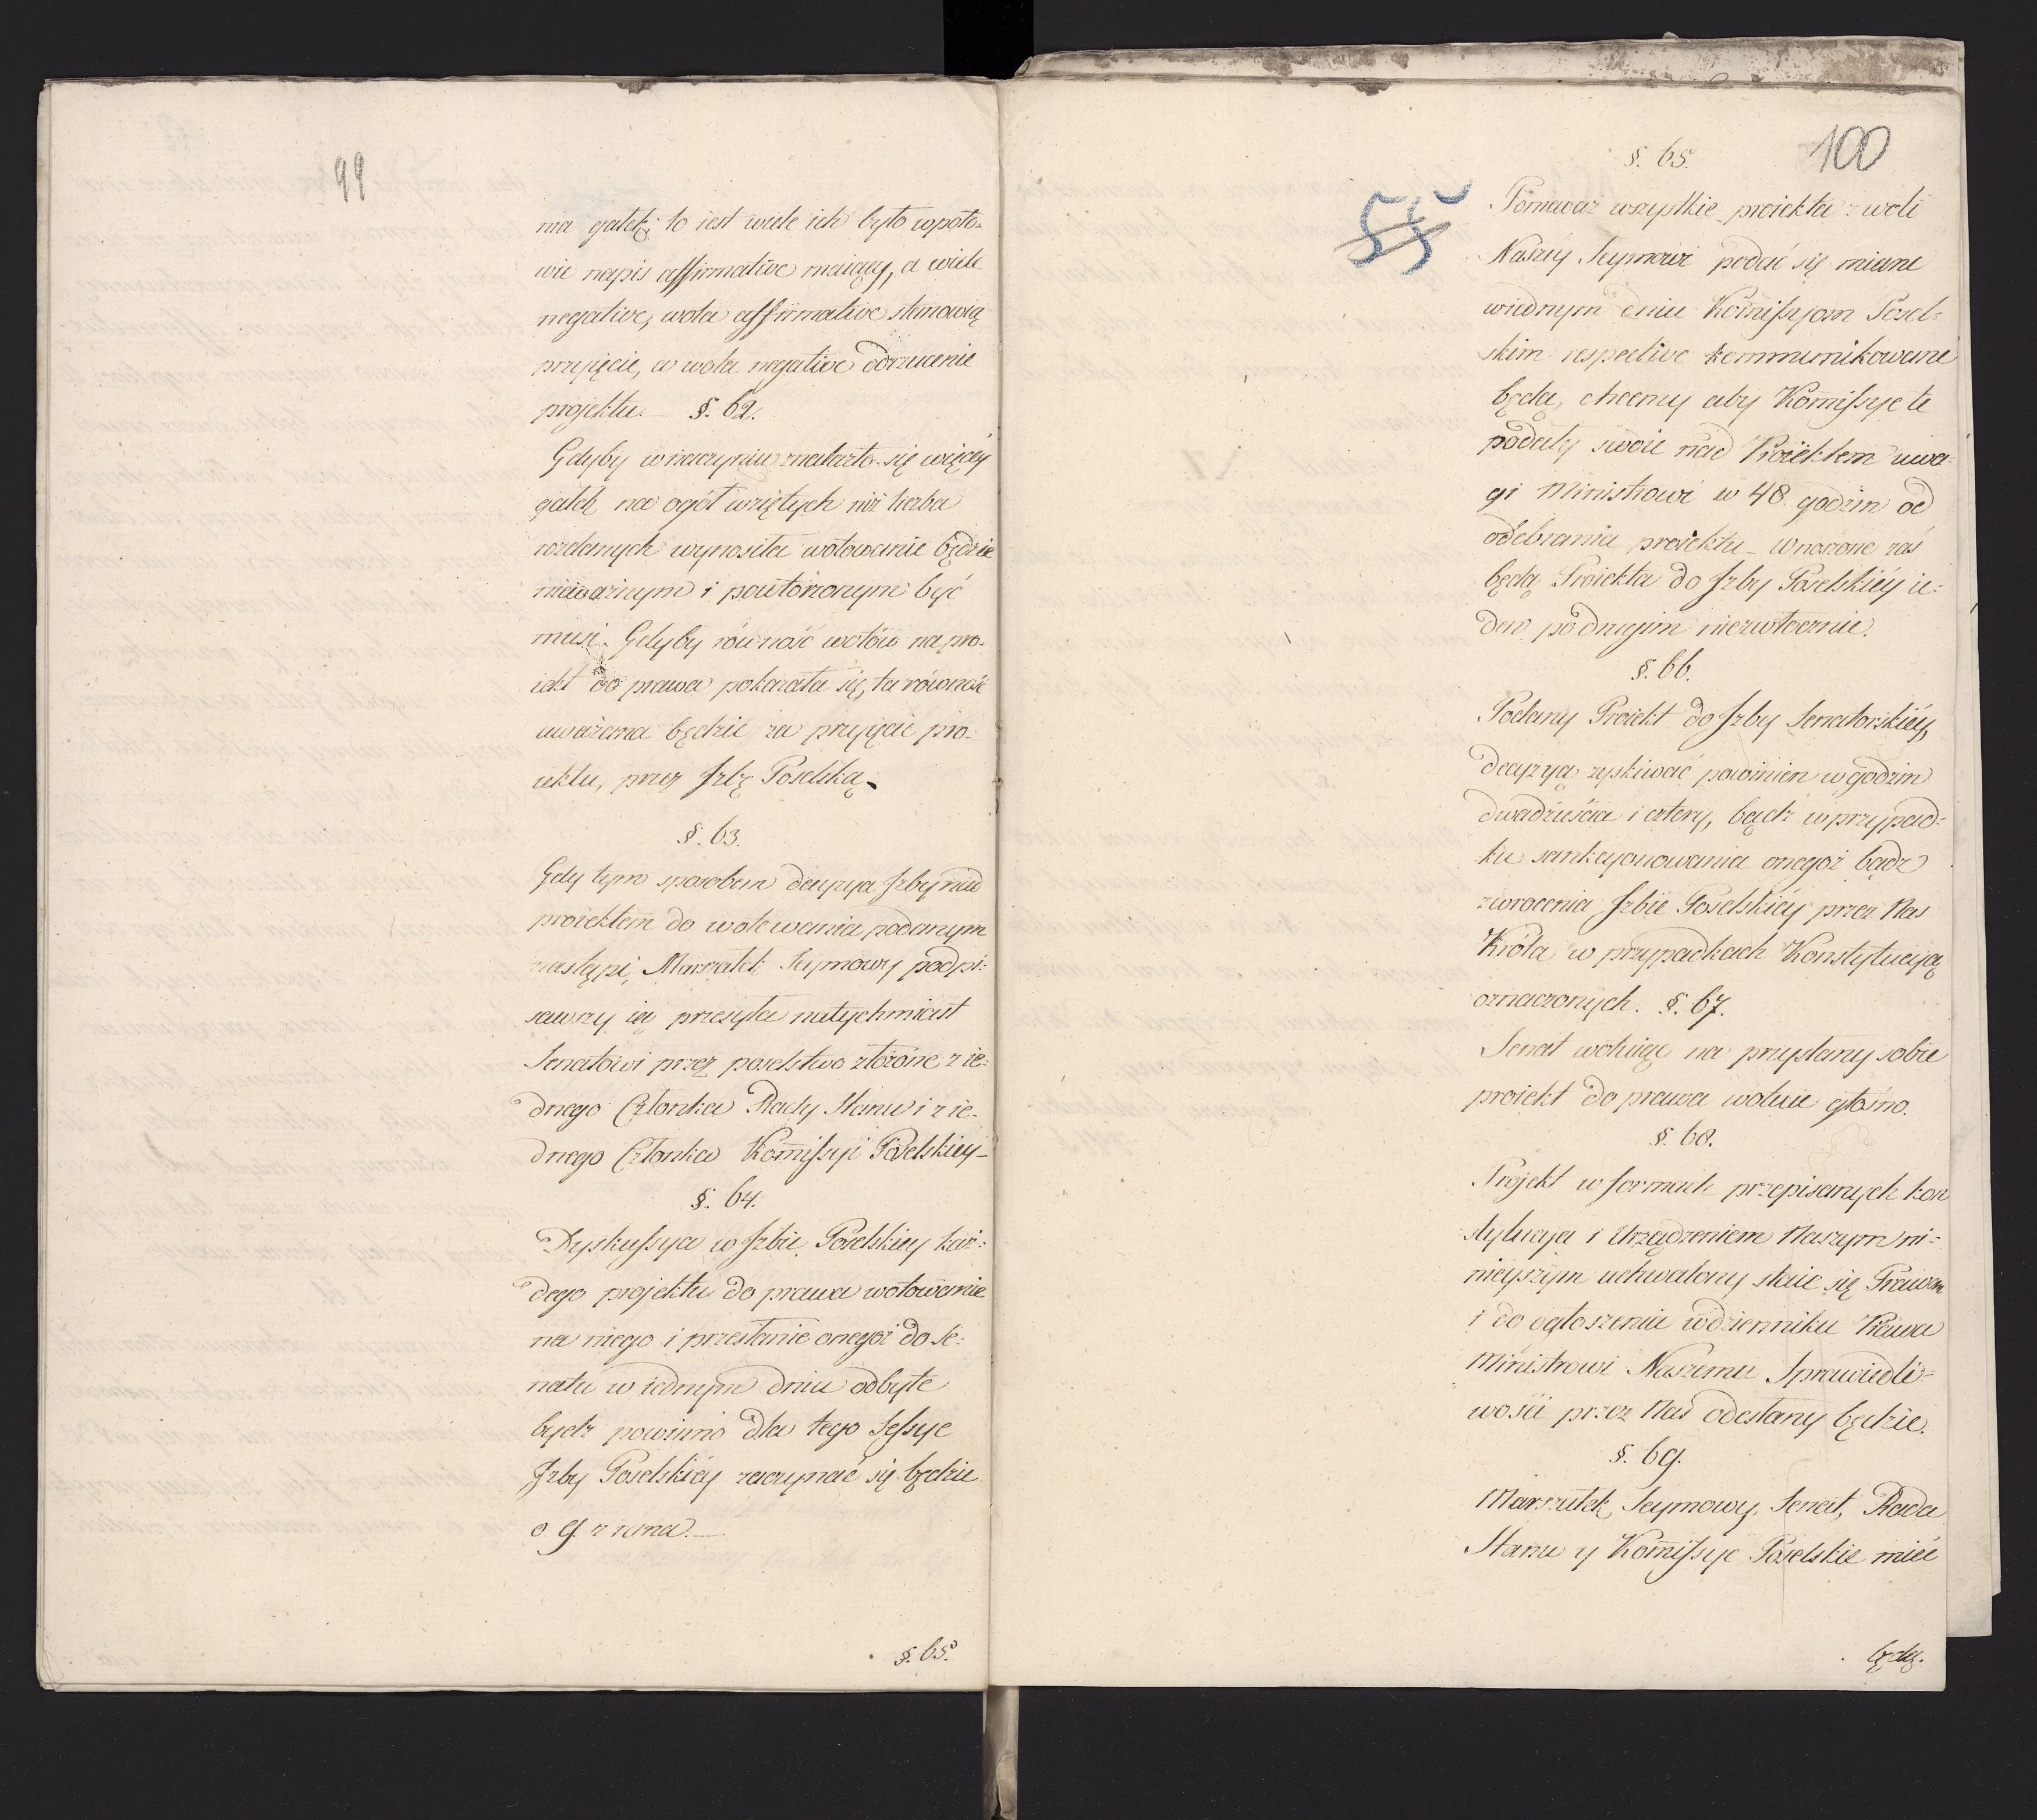 99
ma gałek; to iest wiele ich było wpoło-
wie napis affirmative maiący, a wiele
negative, wota affirmative stanowią
przyjęcie, a wota negative odrzucenie
projektu. §. 62.
Gdyby w naczyniu znalazło się więcéy
gałek na ogół wziętych niż liczba
rozdanych wynosiła wotowanie będzie
nieważnym i powtórzonym być
musi. Gdyby równość wotów na pro-
iekt do prawa pokazała się, ta równość
uważana będzie za przyjęcie pro-
iektu, przez Jzbę Poselską.
§. 63.
Gdy tym sposobem decyzya Jzby nad
proiektem do wotowania podanym
nastąpi, Marszałek Seymowy podpi-
sawszy ią przesyła natychmiast
Senatowi przez poselstwo złożone z ie-
dnego Członka Rady Stanu i z ie-
dnego Członka Komissyi Poselskiey
§. 64.
Dyskussya w Jzbie Poselskiey każ-
dego projektu do prawa wotowanie
na niego i przesłanie onegoż do Se-
natu w iednym dniu odbyte
bydź powinno dla tego Sessye
Jzby Poselskiéy zaczynać się będzie
o 9. z rana.
§. 65.
100
§. 65.
55
Ponieważ wszystkie proiekta z woli
Naszéy Seymowi podać się miane
wiednym dniu Komissyom Posel-
skim respective kommunikowane
będą, chcemy aby Komissye te
podały swoie nad Proiektem uwa-
gi Ministrowi w 48. godzin od
odebrania proiektu - Wnoszone zaś
będą Proiekta do Jzby Poselskiéy ie-
den po drugim niezwłocznie.
§. 66.
Podany Proiekt do Jzby Senatorskiéy,
decyzyą zyskiwać powinien w godzin
dwadzieścia i cztery, bądź w przypad-
ku sankcyonowania onegoż bądź
zwrocenia Jzbie Poselskiéy przez Nas
Króla w przypadkach Konstytucyą
oznaczonych. §. 67.
Senat wotuiąc na przysłany sobie
proiekt do prawa wotuie głośno.
§. 68.
Projekt w formach przepisanych kon
stytucyą i Urządzeniem Naszym ni-
nieyszym uchwalony staie się Prawem
i do ogłoszenia w dzienniku Prawa
Ministrowi Naszemu Sprawiedli-
wości przez Nas odesłany będzie.
§. 69.
Marszałek Seymowy, Senat, Rada
Stanu y Komissye Poselskie mieć
będą.